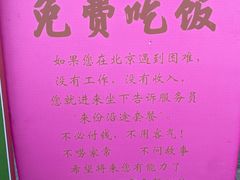 免费吃饭
如果您在北京遇到困难，
没有工作，没有收入，
您就进来坐下告诉服务员
"来份沿途套餐"。
不必付钱，不用客气！
不唠家常 不问故事
希望将来您有能力了